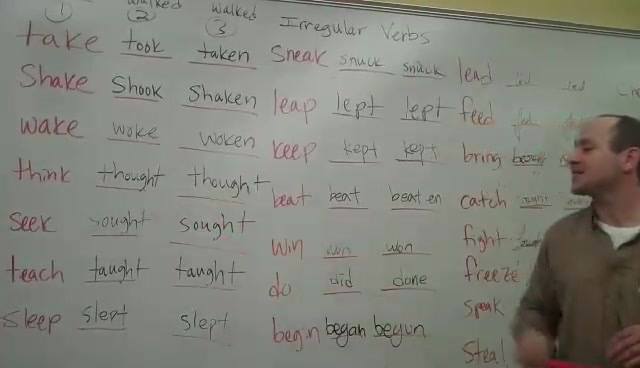 walked walked
1 2 3 Irregular Verbs
take took taken Sneak snuck snuck lead led led
Shake Shook Shaken leap lept lept feed
wake woke woken keep kept kept bring
think thought thought beat beat beaten catch
seek sought sought win won won fight
teach taught taught do did done freeze
sleep slept slept begin began begun speak
Steal